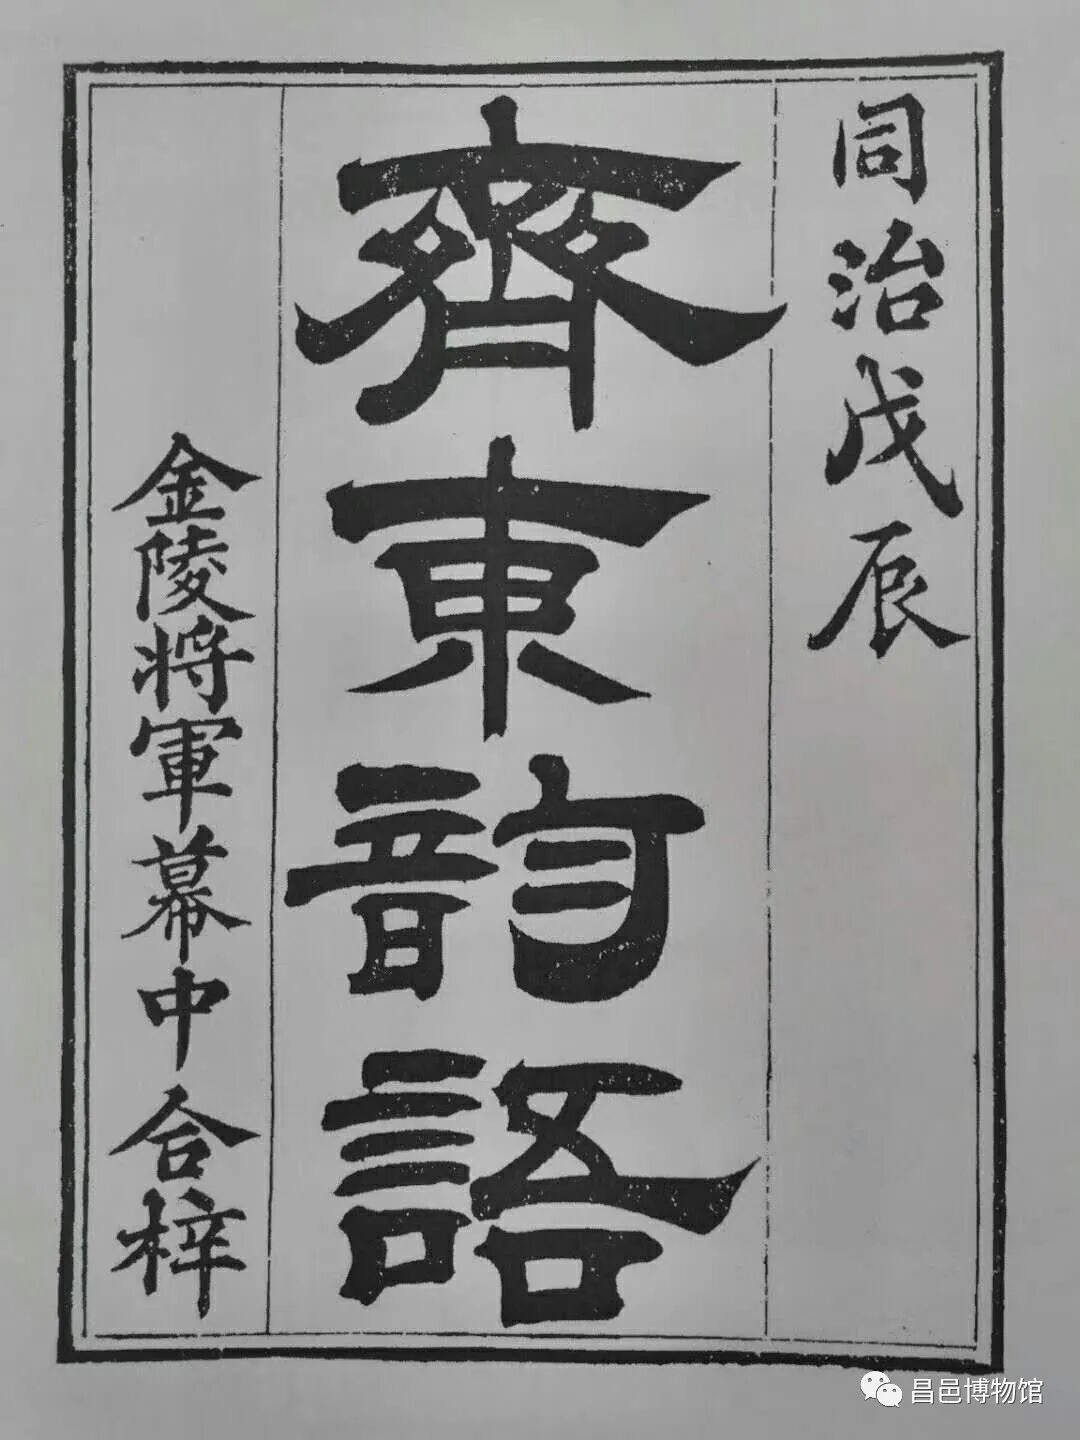 同治戊辰
齊東韵語
金陵将軍幕中合梓
昌邑博物馆